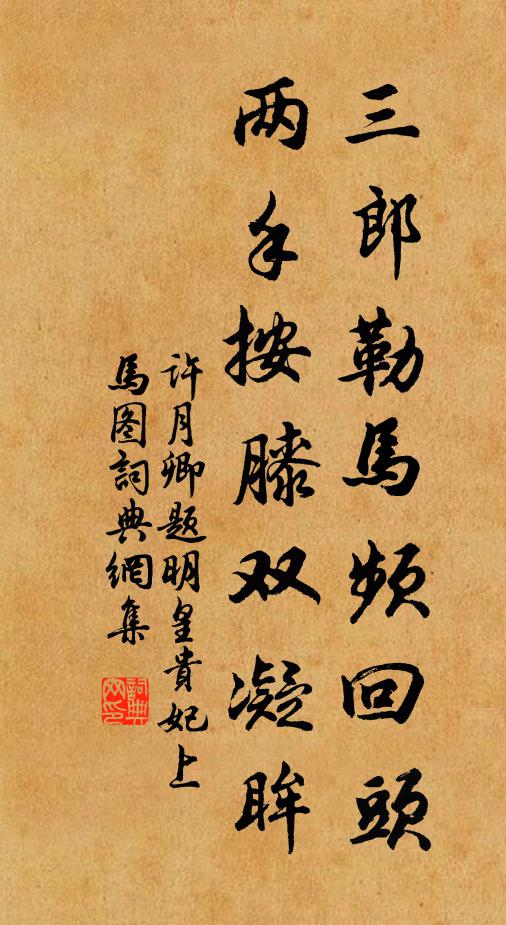 三郎勒馬频回頭
两手按膝双凝眸
许月卿题明皇貴妃上
馬图詞典網集
詞典
网印